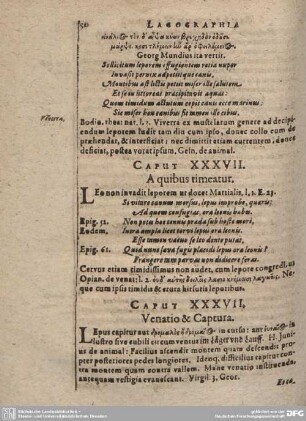 50 LAGOGRAPHIA
Georg Mundius ita vertit.
Sollicitum leporem effugientem retia nuper
Invasit pernix adpetiitque canis,
Montibus afflictis petit miser ille salutem,
Et sein littoreas præcipitavit aquas:
Quem timidum actutum cepit canis ecce marinus:
Sic miser hou canibus sit tamen ille cibus.
Viverra.
Bodin. thea: nat. l. 3. Viverra ex mustelarum genere ad decipi-
endum leporem ludit tam diu cum ipso, donec collo eum
prehendat, & interficiat; nec dimittit etiam currentem, donec
deficiat, postea vorat ipsum, Geln, de animal.
CAPUT XXXVII.
A quibus timeatur.
LEo non invadit leporem ut docet Martialis, l. 1. E. 23.
Si vitare canum morsus, lepus improbe, quæris;
Ad quem confugias, ora leonis habes.
Epig. 52. Non potuit tenuis præda sub
Eodem, Intra ampla licet torvo lepus ora leonis.
Esse tamen vacuo se leo dente putat,
Epig. 61. Quid nunc sæva fugis placidi lepus ora leonis?
Frangere tam parvas non didicere feras.
Cervus etiam timidissimus non audet, cum lepore congredi, us
Opian. de venat: l. 2.
que cum ipsis timida & cruta hirsutis leporibus
CAPUT XXXVII,
Venatio & Captura.
LEpus capitur aut
lustro sive cubili circumventus im Läger und Lauff. H. Juni-
us de animal: Facilius ascendit montem quam descendit pro-
pter posteriores pedes longiores, Ideoq; difficilius capitur con-
tra montem quam contra vallem. Mane venatio instituenda,
antequam vestigia evanescant. Virgil. 3, Geor.